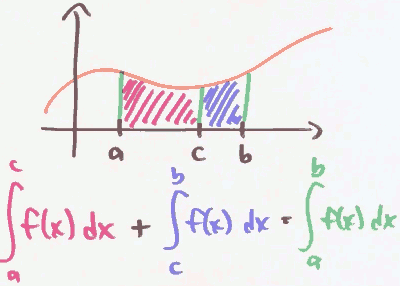 a c b
∫_a^c f(x) dx + ∫_c^b f(x) dx = ∫_a^b f(x) dx